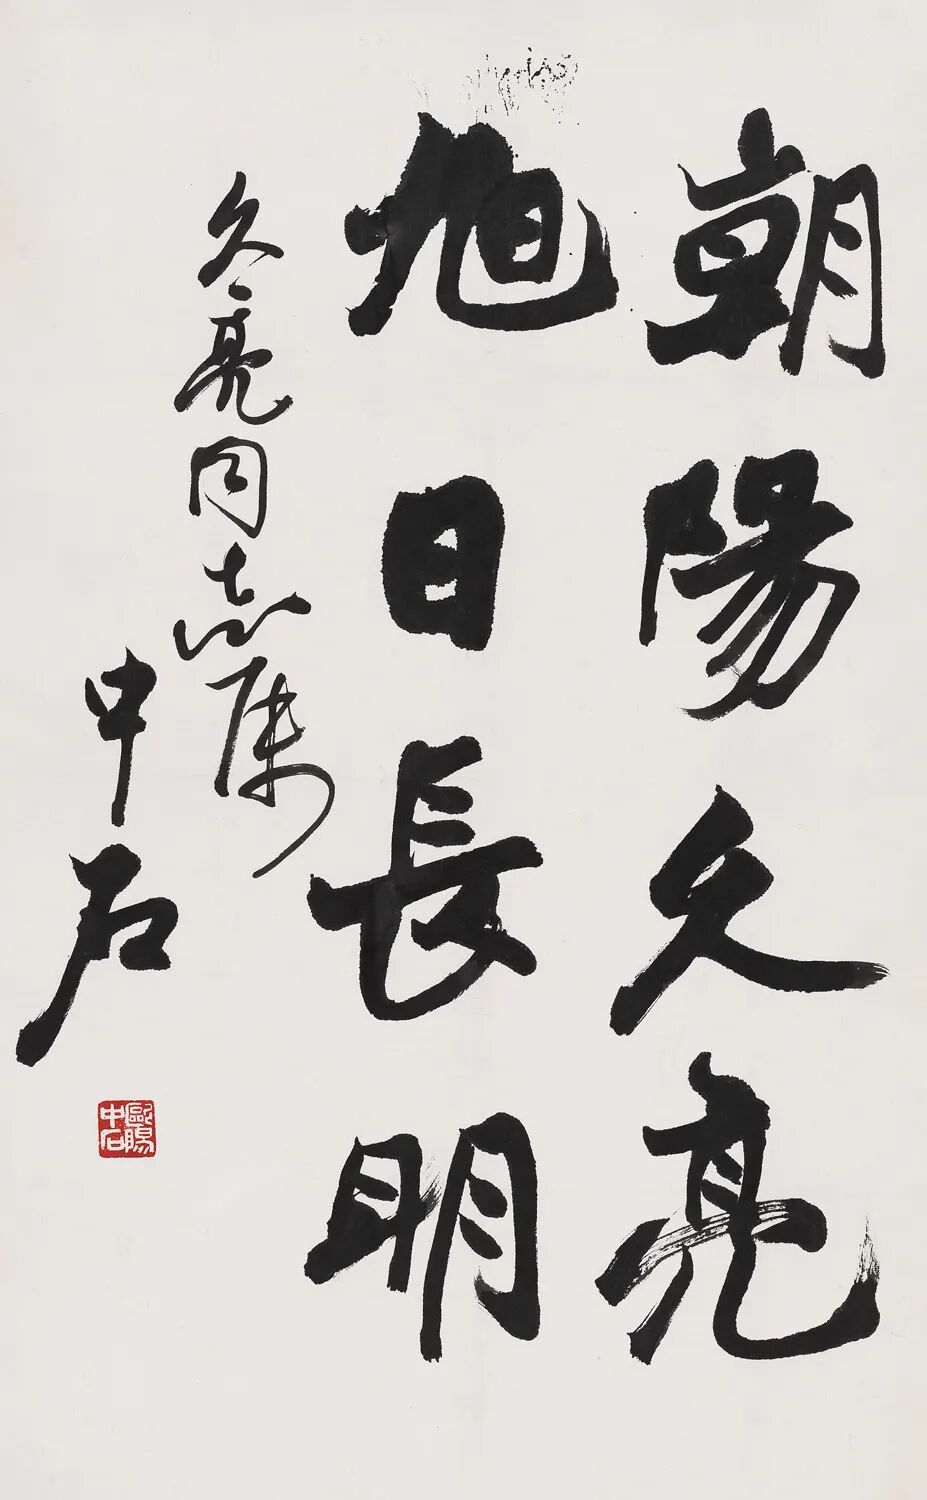 朝陽久亮
旭日長明
久亮同志属
中石
歐陽中石